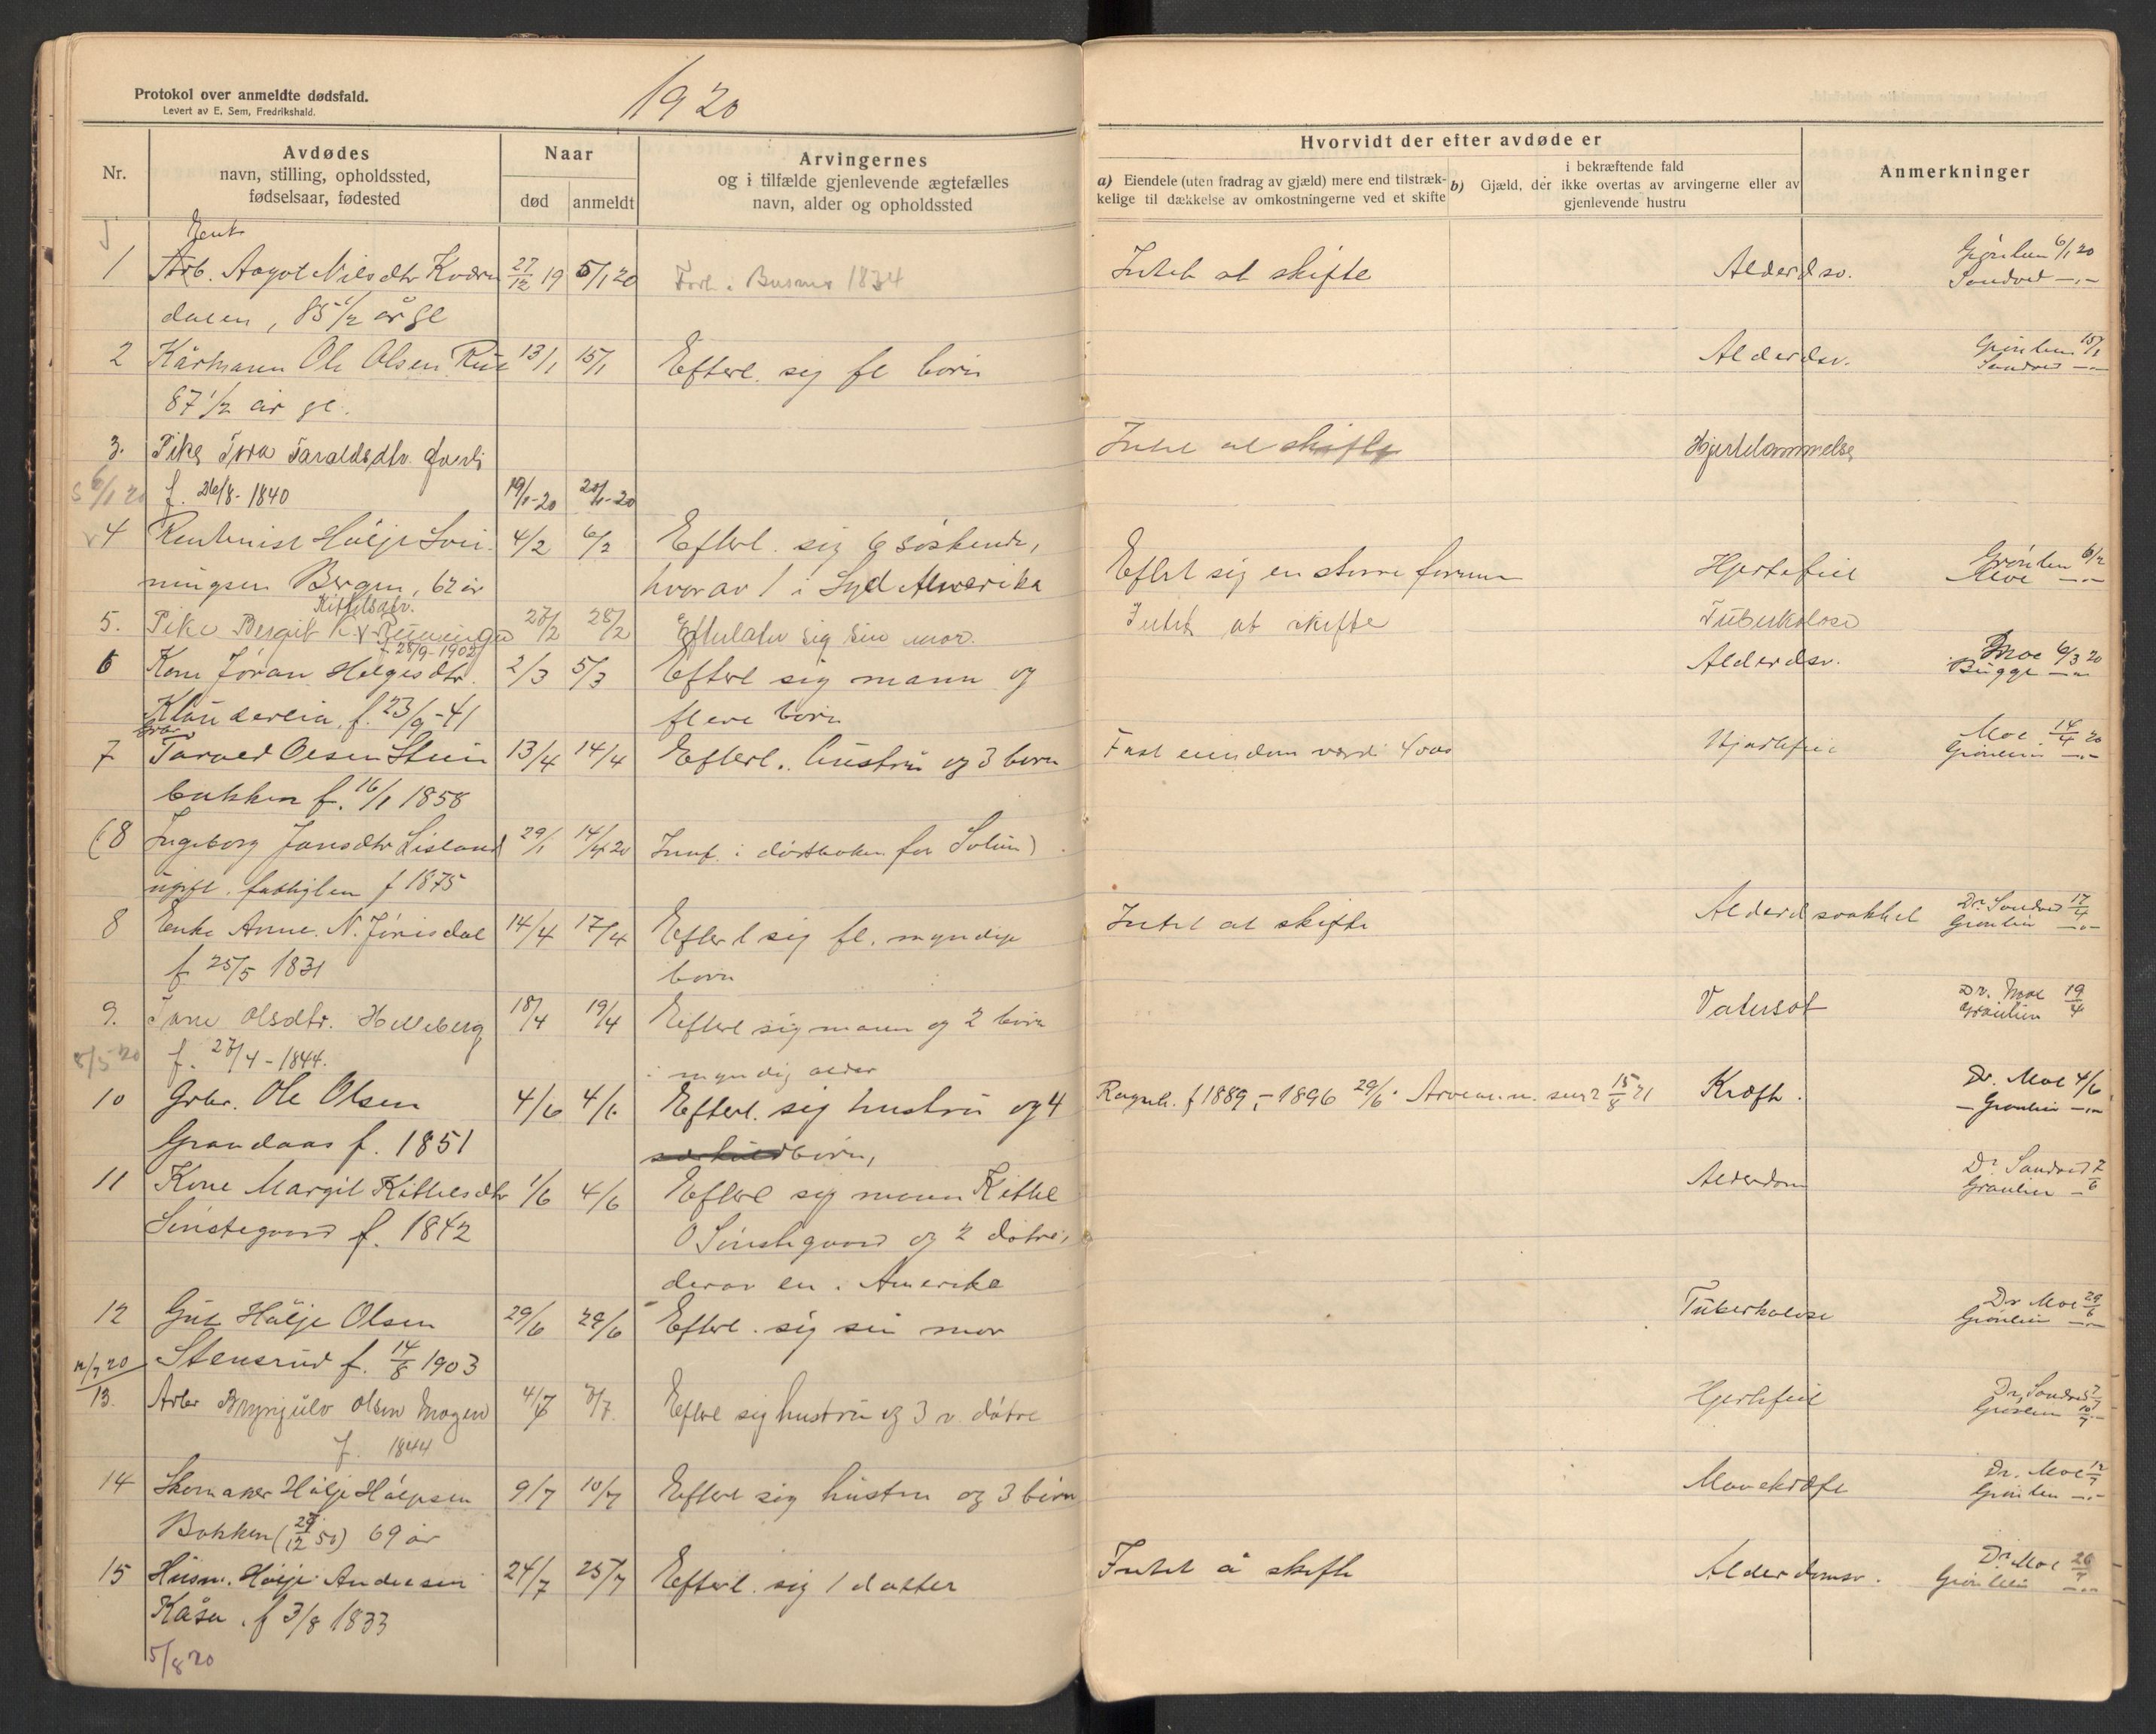 1920
Protokol over anmeldte dødsfald.
Levert av E. Sem, Fredrikshald.
Nr.
Avdødes
navn, stilling, opholdssted,
fødselsaar, fødested
Naar
død
anmeldt
Arvingernes
og i tilfælde gjenlevende ægtefælles
navn, alder og opholdssted
Hvorvidt der efter avdøde er
a) Eiendele (uten fradrag av gjæld) mere end tilstræk-
kelige til dækkelse av omkostningerne ved et skifte
i bekræftende fald
b) Gjæld, der ikke overtas av arvingerne eller av
gjenlevende hustru
Anmerkninger
Enke
1 Arb. Aagot Nilsdtr Kværn 27/12 19 5/1 20 1834 Intet at skifte Alderdsv. 6/1 20
dalen, 85 1/2 år gl Sandved -"-
2 Kårmann Ole Olsen Rue 13/1 15/1 Efterl. sig fl børn Alderdsv. Grønlien 15/1
87 1/2 år gl. Sandved -"-
3. Pike Tora Taraldsdtr. Intet at skifte Hjertelammelse
6/1 20 f. 26/8-1840 19/1-20 20/1-20
4 Rentenist Hølje Svei- 4/2 6/2 Efterl. sig 6 søskende, Grønlien 6/2
ningsen Bergan, 62 år hvorav 1 i Syd Amerika Eftrl sig en større formue Hjertefeil Moe -"-
Kittelsdtr.
5. Pike Bergit K. 27/2 28/2 Efterlater sig sin mor. Intet at skifte Tuberkolose
f 28/9-1902
6 Kone Jøran Helgesdtr. 2/3 5/3 Efterl sig mann og Alderdsv. Moe 6/3 20
Klonderein f. 23/9-41 flere børn Bugge -"-
Gbr
7 Tarald Olsen Stein 13/4 14/4 Efterl. hustru og 3 børn Fast eiendom værdi 4000 Hjertefeil Moe 14/4 20
bakken f. 16/1 1858 Grønlien -"-
(8 Ingeborg Jansdtr Lisland 29/1 14/4 20 Innf. i dødsboken for Solum)
ugift. fattiglem f 1875
8 Enke Anne N. Jørisdal 14/4 17/4 Efterl sig fl. myndige Intet at skifte Alderdsvakhet Dr. Sandved 17/4
f 25/5 1831 børn Grønlien -"-
9. Tone Olsdtr. Helleberg 18/4 19/4 Efterl sig mann og 2 børn Vatersot Dr. Moe 19/4
5/5 20 f. 27/4-1844. i myndig alder Grønlien
10 Gbr. Ole Olsen 4/6 4/6 Efterl. sig hustru og 4 Ragnh. f 1889, - 1896 29/6 15/8 21 Kræft. Dr. Moe 4/6
Grandaas f. 1851 børn, - Grønlien -"-
11 Kone Margit Kittelsdtr 1/6 4/6 Efterl sig mann Kittel Alderdom Dr. Sandved 7/6
Sinstegaard f. 1842 O Sinstegaard og 2 døtre, Grønlien -"-
derav en i Amerika
12 Gut Hølje Olsen 29/6 29/6 Efterl. sig sin mor Tuberkolose Dr Moe 29/6
12/7 20 Stensrud f. 14/8 1903 Grønlien -"-
13. Arbr Brynjulv Olsen Mogen 4/7 7/7. Efterl sig hustru og 3 v. døtre Hjertefeil Dr. Sandved 7/7
f. 1844 Grønlien 10/7
14 Skomaker Hølje Høljesen 9/7 10/7 Efterl sig hustru og 3 børn Mavekræft Dr. Moe 12/7
Bakken (29/12 50) 69 år Grønlien -"-
15 Husm. Hølje Andersen 24/7 25/7 Efterl. sig 1 datter Intet å skifte Alderdomsv. Dr Moe 26/7
Kåsa. f 3/8 1833 Grønlien -"-
5/8 20